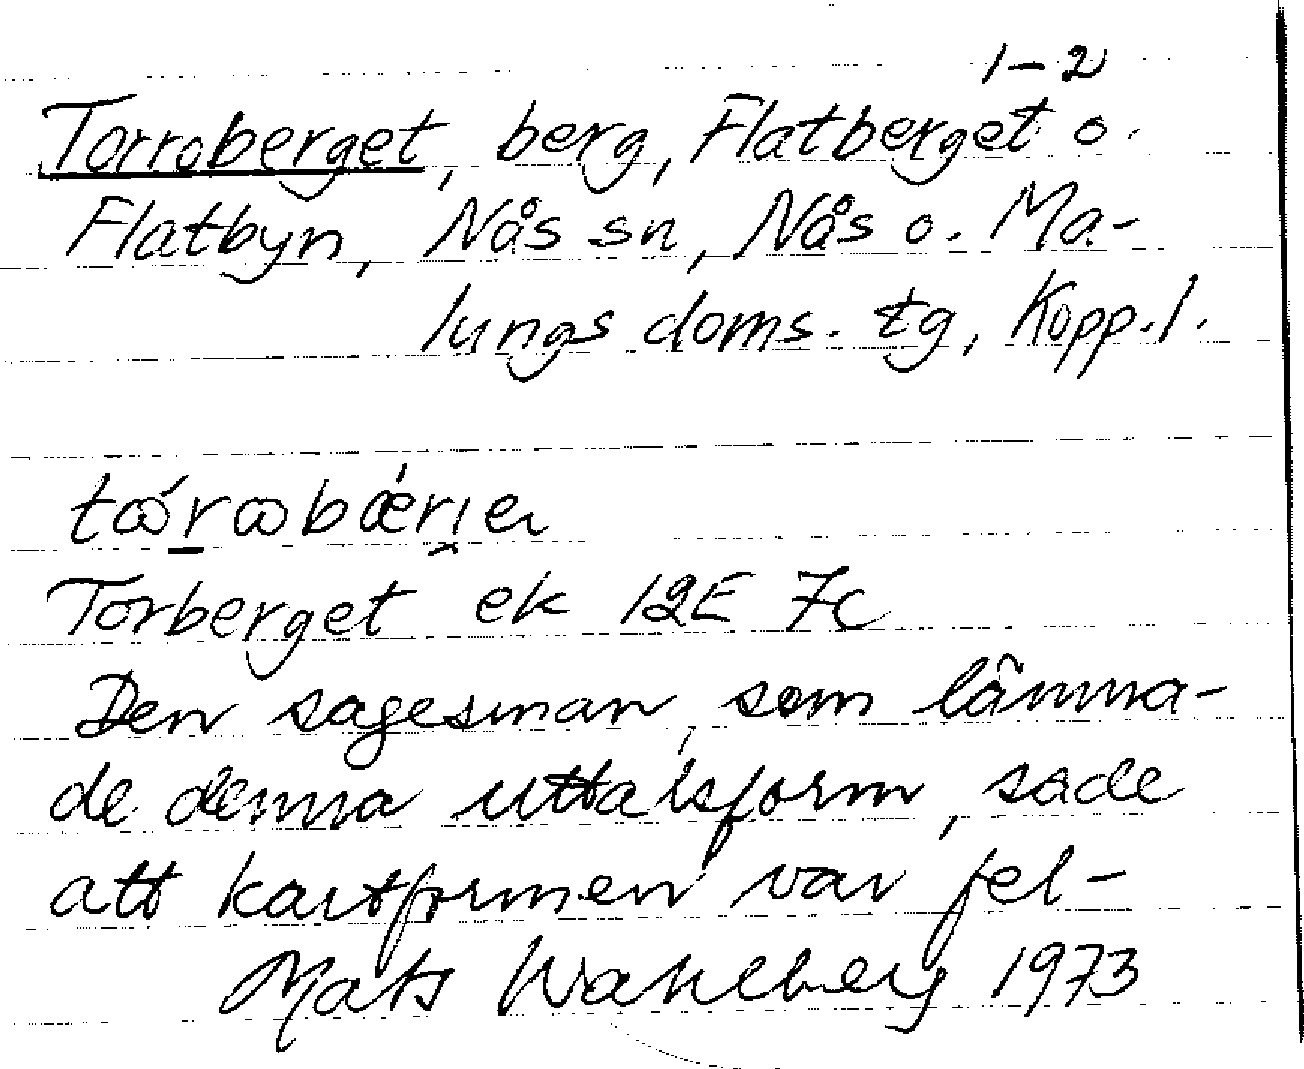 1-2
Torroberget, berg, Flatberget o.
Flatbyn, Nås sn, Nås o. Ma-
lungs doms. tg, Kopp.l.
Torberget ek 12E 7c
Den sagesman, som lämna-
de denna uttalsform, sade
att kartformen var fel-
Mats Wahlberg 1973